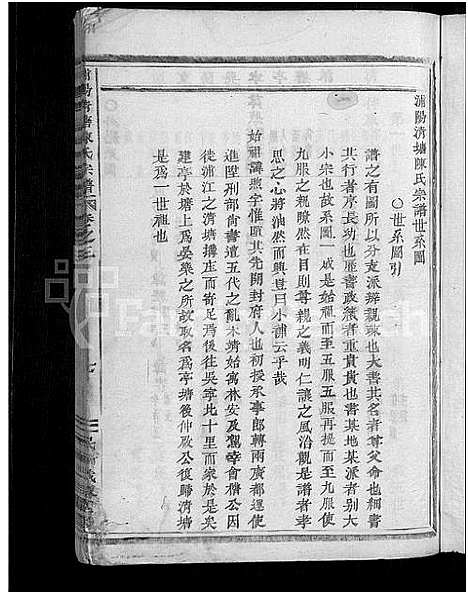 浦陽淸塘陳氏宗譜世系圖
○世系圖引
譜之有圖所以分支派辨親疎也大書其名者尊父命也細書
其行者序長幼也歷書政績者重貴貴也書某地某派者別大
小宗也故系圖一成是始祖而至五服五服再提而至九服使
九服之親瞭然在目則尊親之義明仁讓之風洽觀是譜者孝
思之心將油然而興豈曰小補云乎哉
始祖諱燕字惟賾其先開封府人也初授承事郎轉兩廣都運使
進陞刑部尙書遭五代之亂未靖始寓林安及駕幸會稽公因
徙浦江之淸塘搆庄而寄足焉後往吳寧北十里而家於是矣
建亭於塘上爲晏樂之所故取名爲亭塘後仲殷公復歸淸塘
是爲一世祖也
浦陽淸塘陳氏宗譜 卷之三
七